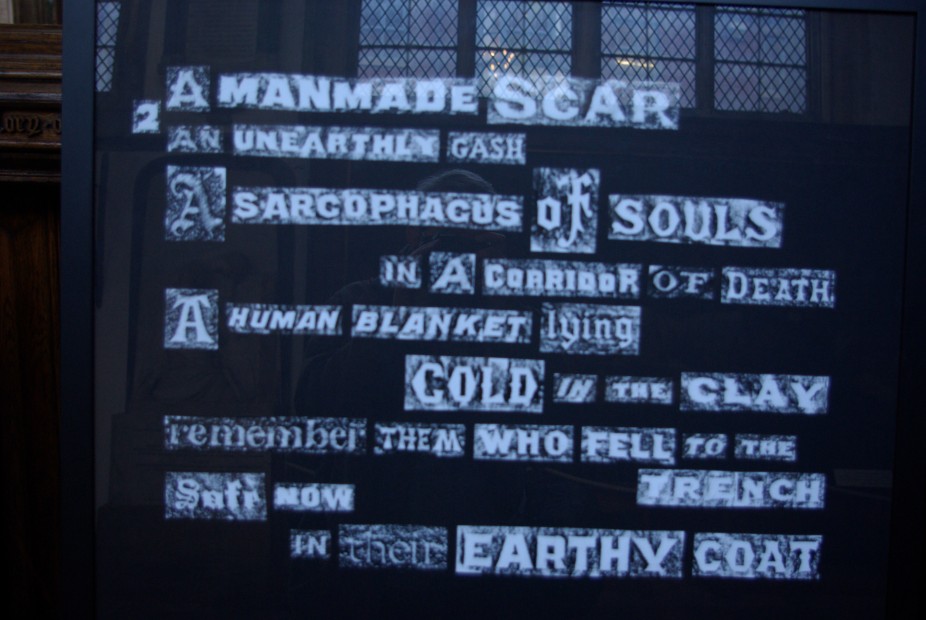 2 A MANMADE SCAR
AN UNEARTHLY GASH
A SARCOPHAGUS OF SOULS
IN A CORRIDOR OF DEATH
A HUMAN BLANKET lying
COLD IN THE CLAY
remember THEM WHO FELL TO THE
TRENCH
Safe NOW
IN their EARTHY COAT